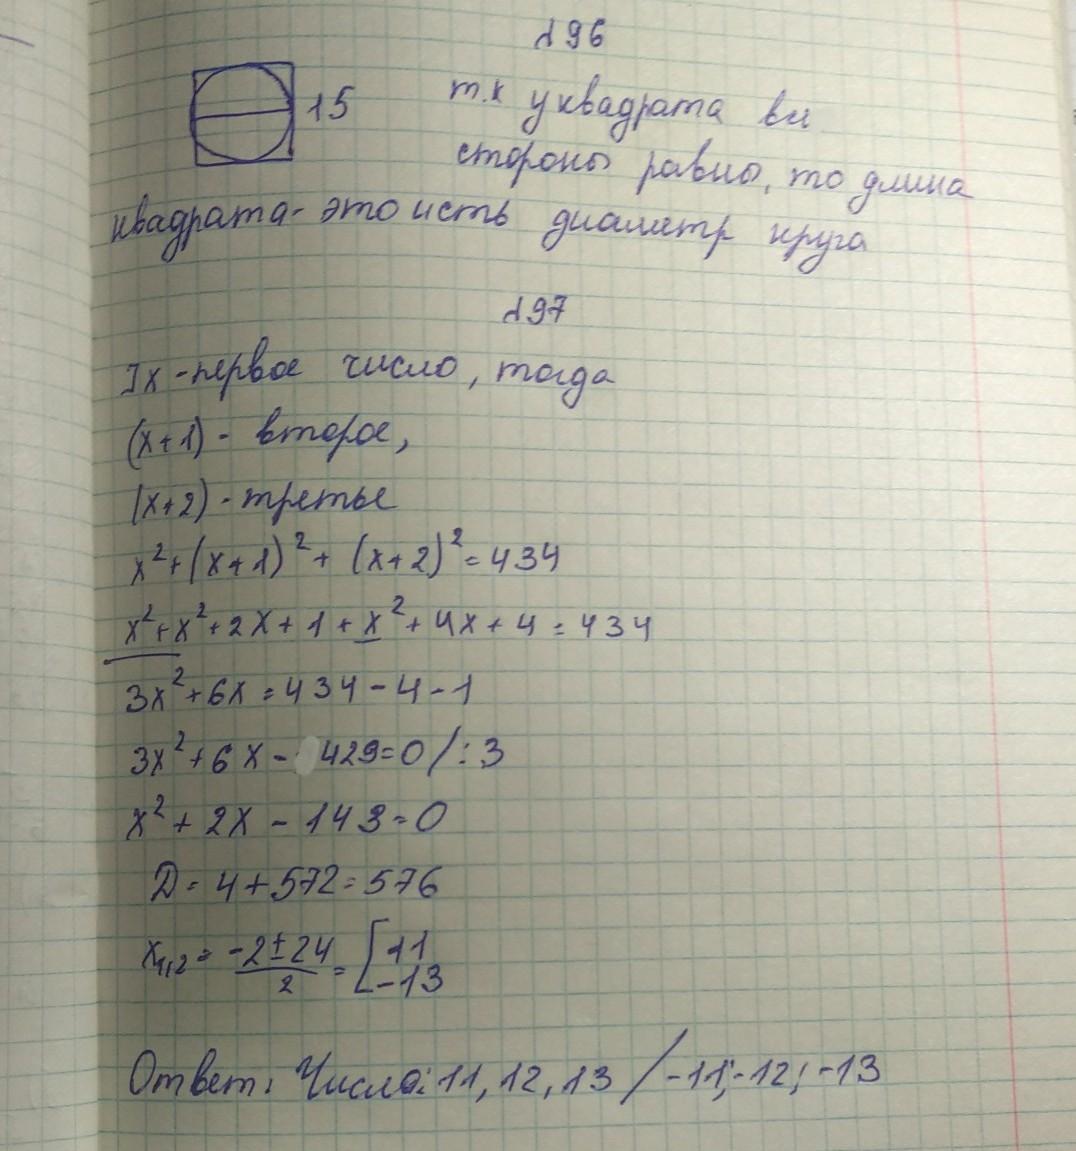 №96
15
т.к у квадрата вы
стороны равны, то длина
квадрата - это исть диаметр круга
№97
]x - первое число, тогда
(x+1) - второе,
(x+2) - третье
x² + (x+1)² + (x+2)² = 434
x² + x² + 2x + 1 + x² + 4x + 4 = 434
3x² + 6x = 434 - 4 - 1
3x² + 6x - 429 = 0 / : 3
x² + 2x - 143 = 0
D = 4 + 572 = 576
x₁,₂ = (-2 ± 24)/2 = [ 11 -13
Ответ: Числа: 11, 12, 13 / -11; -12; -13